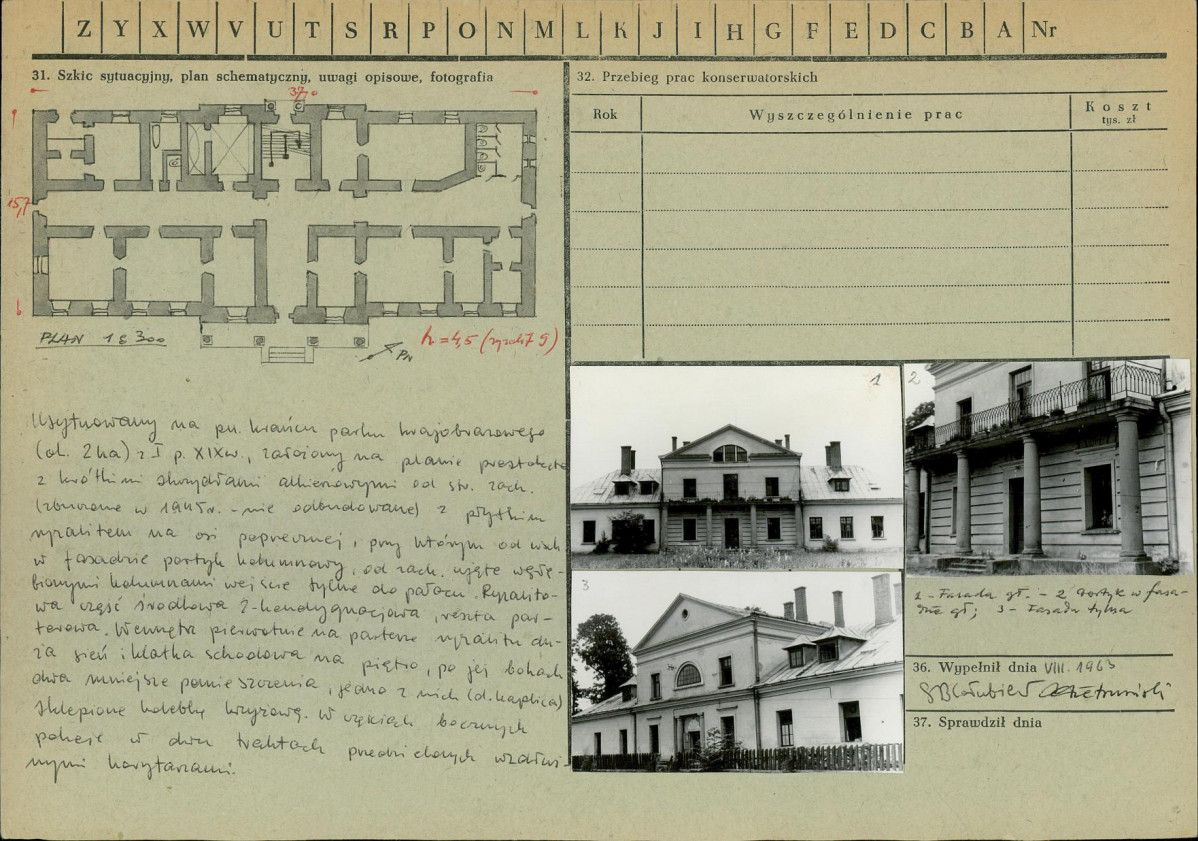 Z Y X W V U T S R P O N M L K J I H G F E D C B A Nr
31. Szkic sytuacyjny, plan schematyczny, uwagi opisowe, fotografia
37,0
15,7
PLAN 1:300
h = 4,5 (ryzalit 7 9)
Pn
Usytuowany na pn. krańcu parku krajobrazowego
(ok. 2ha) z I p. XIXw., założony na planie prostokąta
z krótkimi skrzydłami alkierzowymi od str. zach.
(zburzone w 1945r. - nie odbudowane) z płytkim
ryzalitem na osi poprzecznej, przy którym od wsch
w fasadzie portyk kolumnowy, od zach. ujęte wgłę-
bionymi kolumnami wejście tylne do pałacu. Ryzalito-
wa część środkowa 2-kondygnacjowa, reszta par-
terowa. Wewnątrz pierwotnie na parterze ryzalitu du-
ża sień i klatka schodowa na piętro, po jej bokach
dwa mniejsze pomieszczenia, jedno z nich (d. kaplica)
sklepione kolebką krzyżową. W częściach bocznych
pokoje w dwu traktach przedzielonych wzdłuż-
nymi korytarzami.
32. Przebieg prac konserwatorskich
Rok Wyszczególnienie prac Koszt
tys. zł
1
2
3
1 - Fasada gł. - 2 Portyk w fasa-
dzie gł; 3 - Fasada tylna
36. Wypełnił dnia VIII. 1963
37. Sprawdził dnia